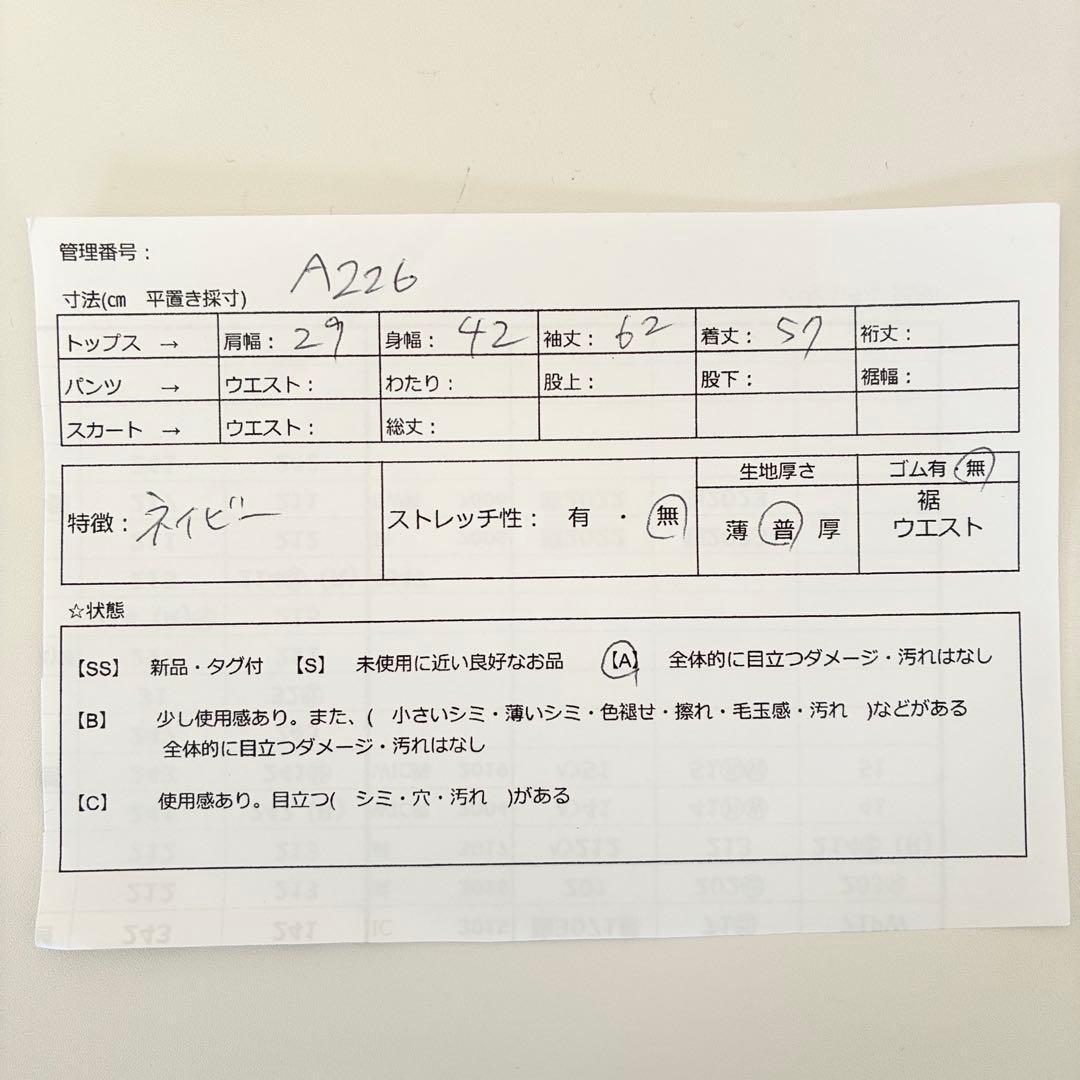 管理番号：
A226
寸法(㎝　平置き採寸)
トップス　→　肩幅：29　身幅：42　袖丈：62　着丈：57　裄丈：
パンツ　→　ウエスト：　わたり：　股上：　股下：　裾幅：
スカート　→　ウエスト：　総丈：
生地厚さ　ゴム有・無
特徴：ネイビー　ストレッチ性：　有　・　無　薄　普　厚　裾
ウエスト
☆状態
【SS】　新品・タグ付　【S】　未使用に近い良好なお品　【A】　全体的に目立つダメージ・汚れはなし
【B】　少し使用感あり。また、(　小さいシミ・薄いシミ・色褪せ・擦れ・毛玉感・汚れ　)などがある
全体的に目立つダメージ・汚れはなし
【C】　使用感あり。目立つ(　シミ・穴・汚れ　)がある